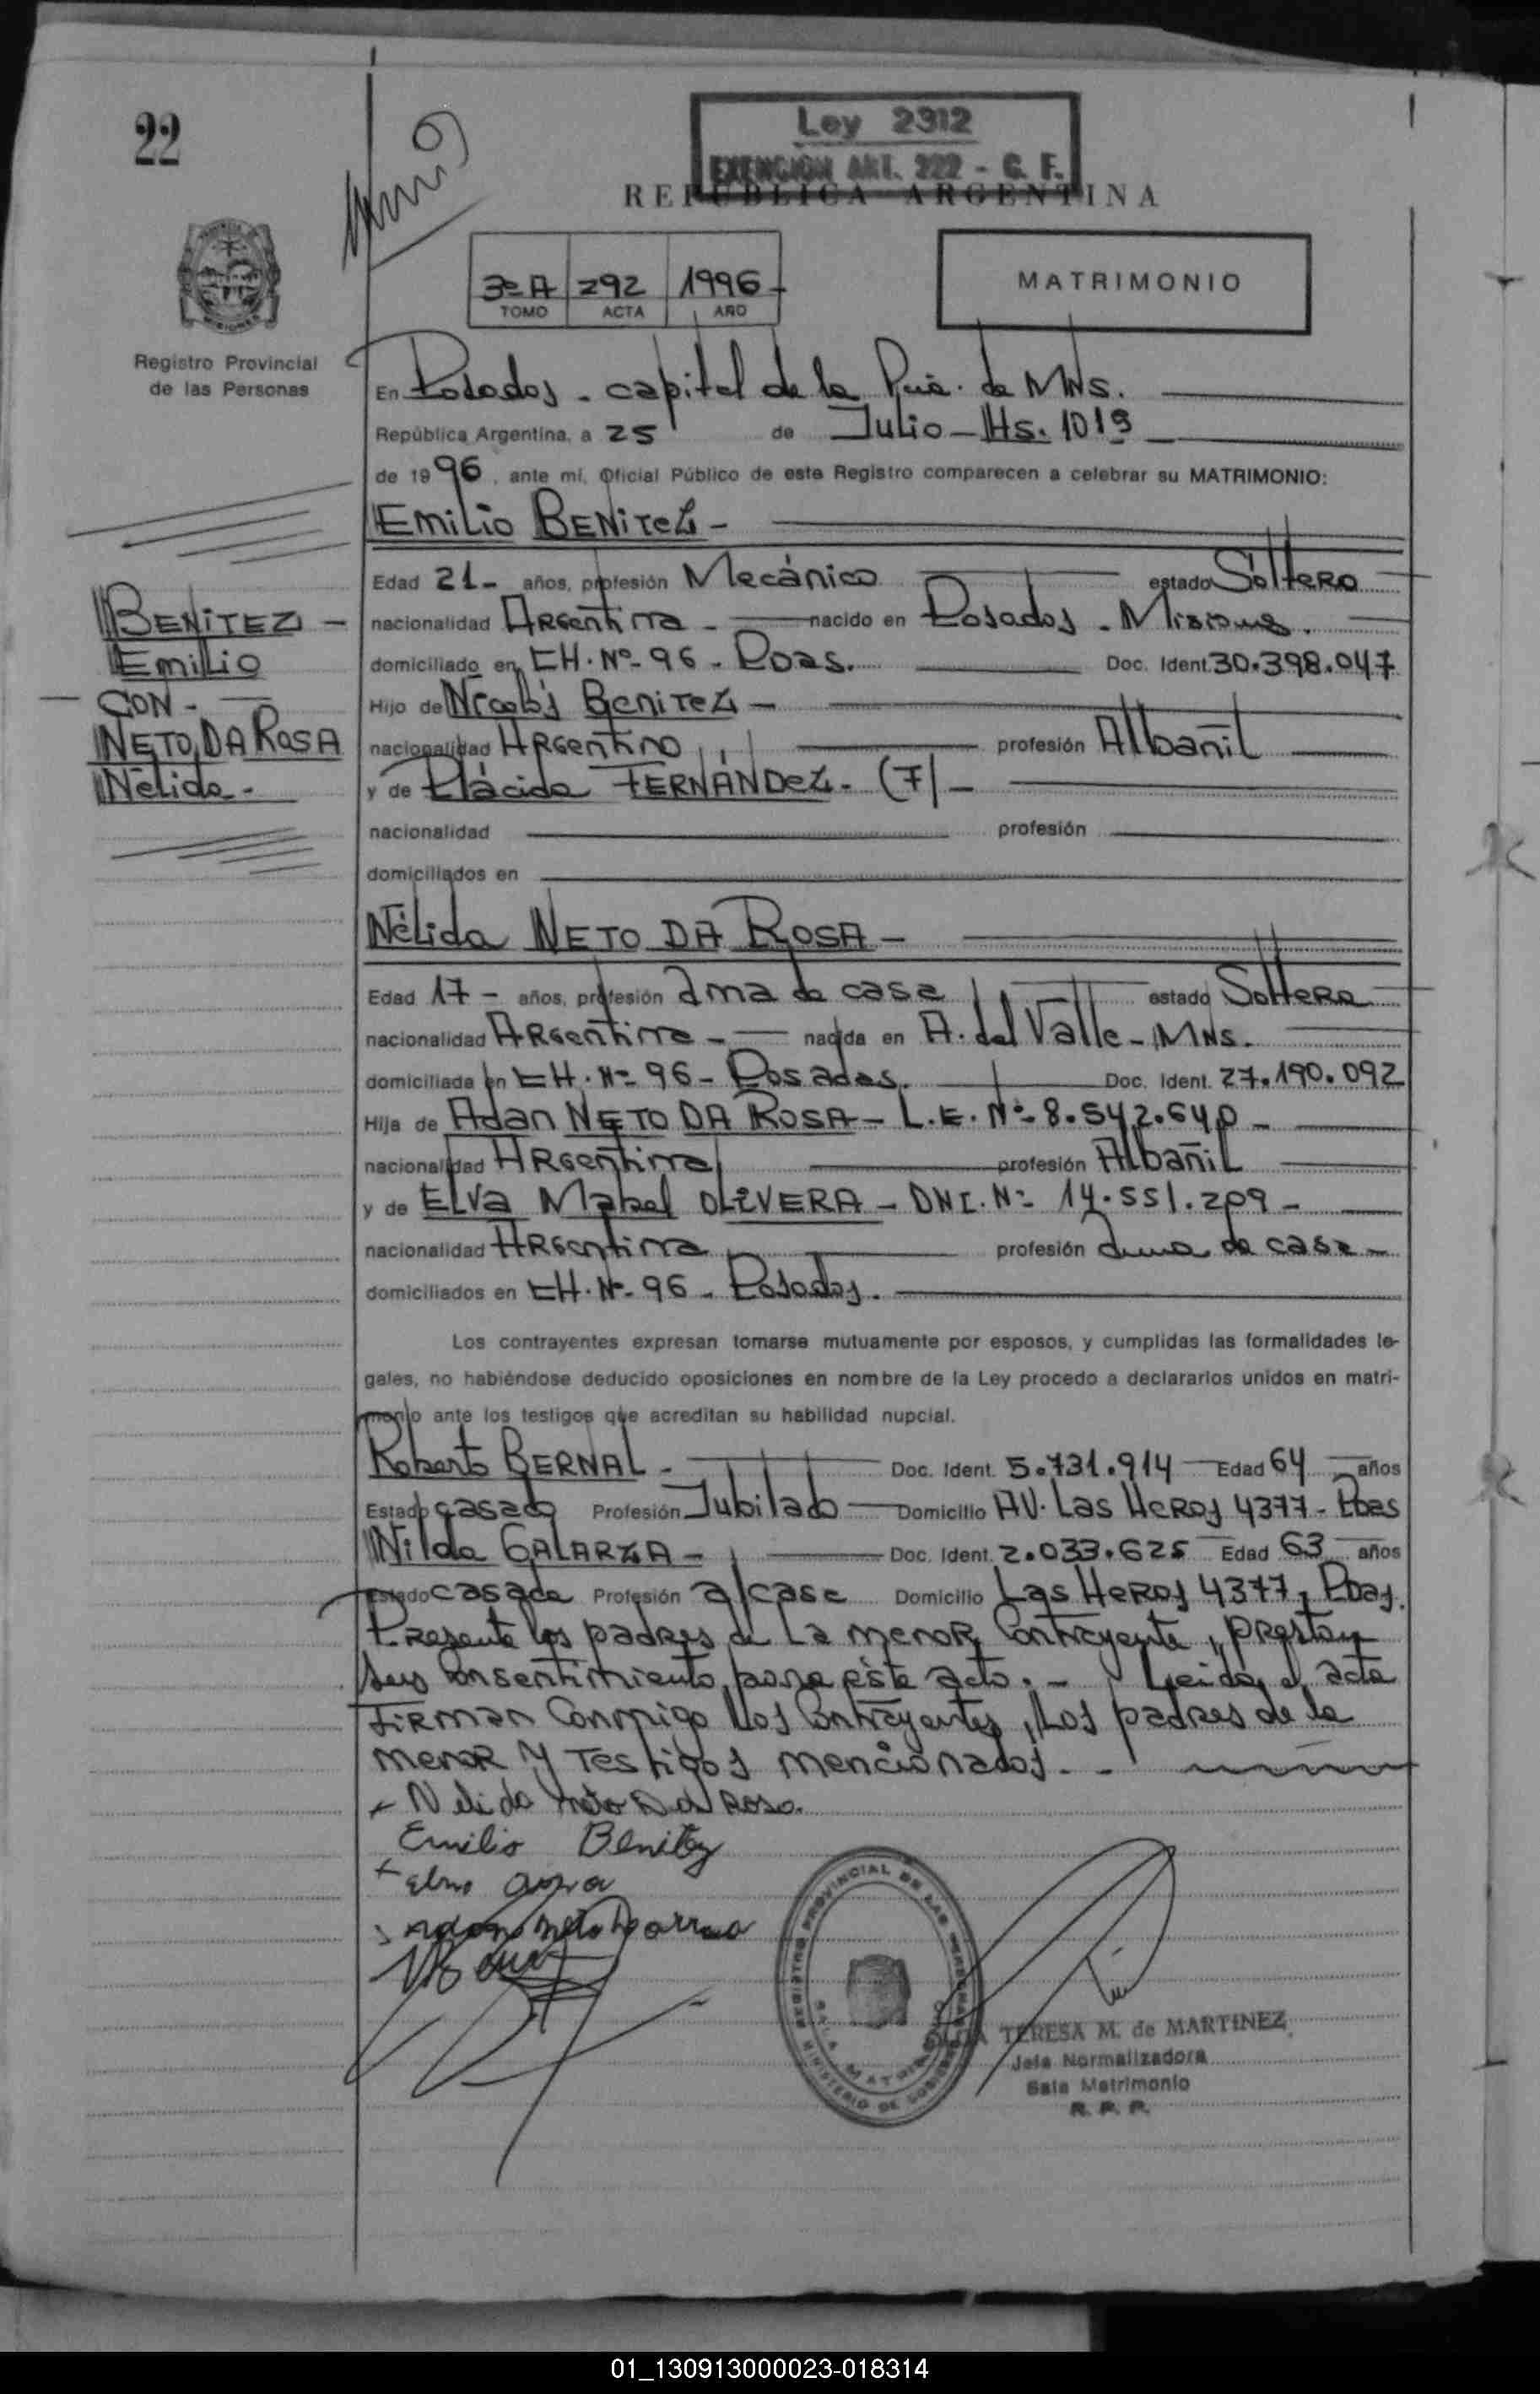 22
Ley 2312
EXENCION ART. 222 - C. F.
REPUBLICA ARGENTINA
3º A 292 1996
TOMO ACTA AÑO
MATRIMONIO
Registro Provincial
de las Personas
En Posadas - capital de la Pcia. de MNS.
República Argentina, a 25 de Julio - Hs. 1019
de 1996, ante mí, Oficial Público de este Registro comparecen a celebrar su MATRIMONIO:
Emilio BENITEZ -
Edad 21 - años, profesión Mecánico estado Soltero
nacionalidad Argentina - nacido en Posadas - Misiones.
domiciliado en CH. Nº 96 - Pdas. Doc. Ident. 30.398.047
Hijo de Nicolás Benitez -
nacionalidad Argentino profesión Albañil
y de Plácida FERNÁNDEZ - (F) -
nacionalidad profesión
domiciliados en
BENITEZ -
Emilio
- CON -
NETO DA ROSA
Nélida -
Nélida NETO DA ROSA -
Edad 17 - años, profesión ama de casa estado Soltera
nacionalidad Argentina - nacida en A. del Valle - MNS.
domiciliada en CH. Nº 96 - Posadas. Doc. Ident. 27.190.092
Hija de Adan NETO DA ROSA - L.E. Nº 8.542.640 -
nacionalidad Argentina profesión Albañil
y de Elva Mabel OLIVERA - DNI. Nº 14.551.209 -
nacionalidad Argentina profesión ama de casa -
domiciliados en CH. Nº 96 - Posadas.
Los contrayentes expresan tomarse mutuamente por esposos, y cumplidas las formalidades le-
gales, no habiéndose deducido oposiciones en nombre de la Ley procedo a declararlos unidos en matri-
monio ante los testigos que acreditan su habilidad nupcial.
Roberto BERNAL - Doc. Ident. 5.731.914 Edad 64 años
Estado casado Profesión Jubilado Domicilio AV. Las Heros 4377 - Pdas
Nilda GALARZA - Doc. Ident. 2.033.625 Edad 63 años
Estado casada Profesión a/casa Domicilio Las Heros 4377, Pdas.
Presente los padres de la menor Contrayente, prestan
sus consentimiento para éste acto. - Leida el acta
Firman Conmigo los Contrayentes, los padres de la
menor y testigos mencionados. -
Nelida neto Da Rosa.
Emilio Benitez
REGISTRO PROVINCIAL DE LAS PERSONAS
SALA MATRIMONIO
MINISTERIO DE GOBIERNO
TERESA M. de MARTINEZ
Jefa Normalizadora
Sala Matrimonio
R. P. P.
01_130913000023-018314